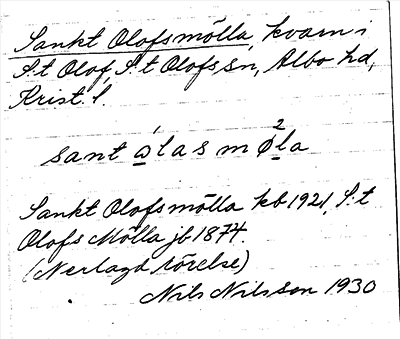 Sankt Olofsmölla, kvarn i
S:t Olof, S:t Olofs sn, Albo hd,
Krist. l.
sant ώ̱lasmø̱²la
Sankt Olofsmölla kb 1921, S:t
Olofs Mölla jb 1874.
(Nerlagd rörelse)
Nils Nilsson 1930